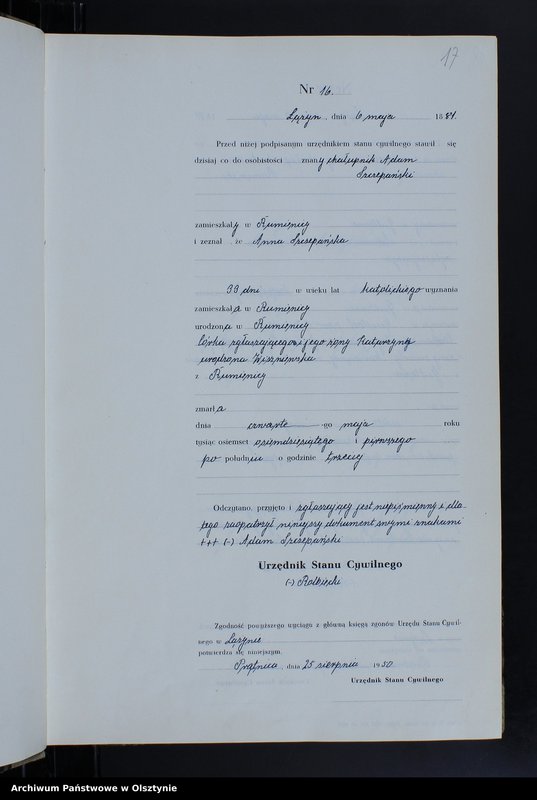 17
Nr 16.
Łążyn, dnia 6 maja 1881.
Przed niżej podpisanym urzędnikiem stanu cywilnego stawił się
dzisiaj co do osobistości znany chałupnik Adam
Szczepański
zamieszkały w Rumienicy
i zeznał że Anna Szczepańska
33 dni w wieku lat katolickiego wyznania
zamieszkała w Rumienicy
urodzona w Rumienicy
córka zgłaszającego i jego żony Katarzyny
urodzona Wiszniewska
z Rumienicy
zmarła
dnia czwarte -go maja roku
tysiąc osiemset osiemdziesiątego i pierwszego
po południu o godzinie trzeciej
Odczytano, przyjęto i zgłaszający jest niepiśmienny i dla-
tego zaopatrzył niniejszy dokument swymi znakami
+++ (-) Adam Szczepański
Urzędnik Stanu Cywilnego
(-)
Zgodność powyższego wyciągu z główną księgą zgonów Urzędu Stanu Cywil-
nego w Łążynie
potwierdza się niniejszym.
Prątnica, dnia 25 sierpnia 1950
Urzędnik Stanu Cywilnego
Archiwum Państwowe w Olsztynie